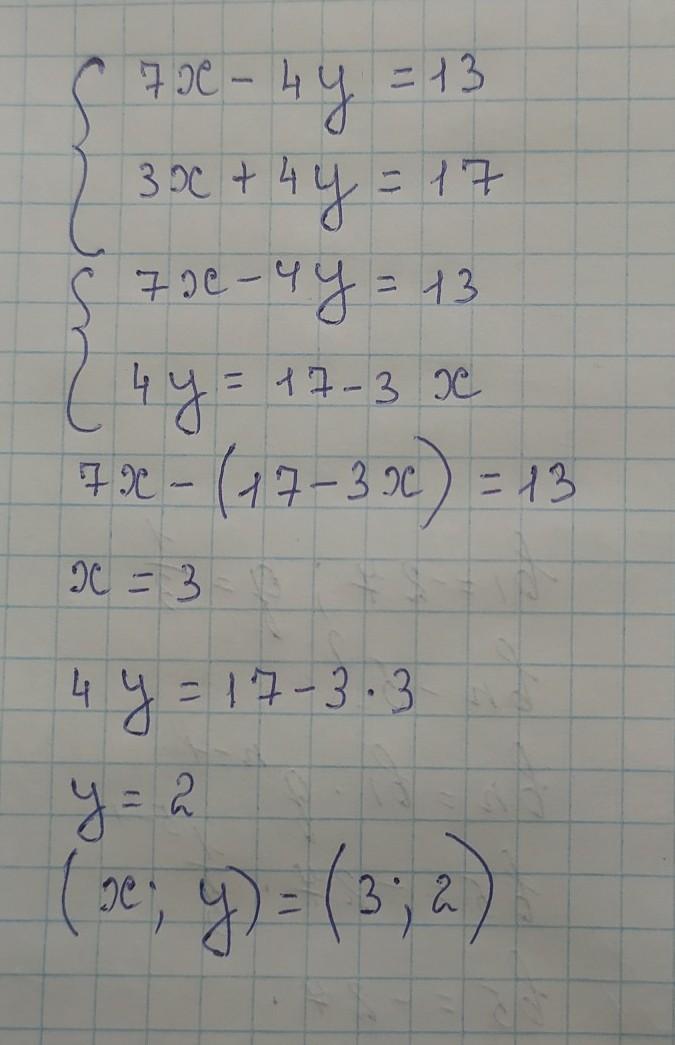 7x - 4y = 13
3x + 4y = 17
7x - 4y = 13
4y = 17 - 3x
7x - (17 - 3x) = 13
x = 3
4y = 17 - 3 · 3
y = 2
(x; y) = (3; 2)